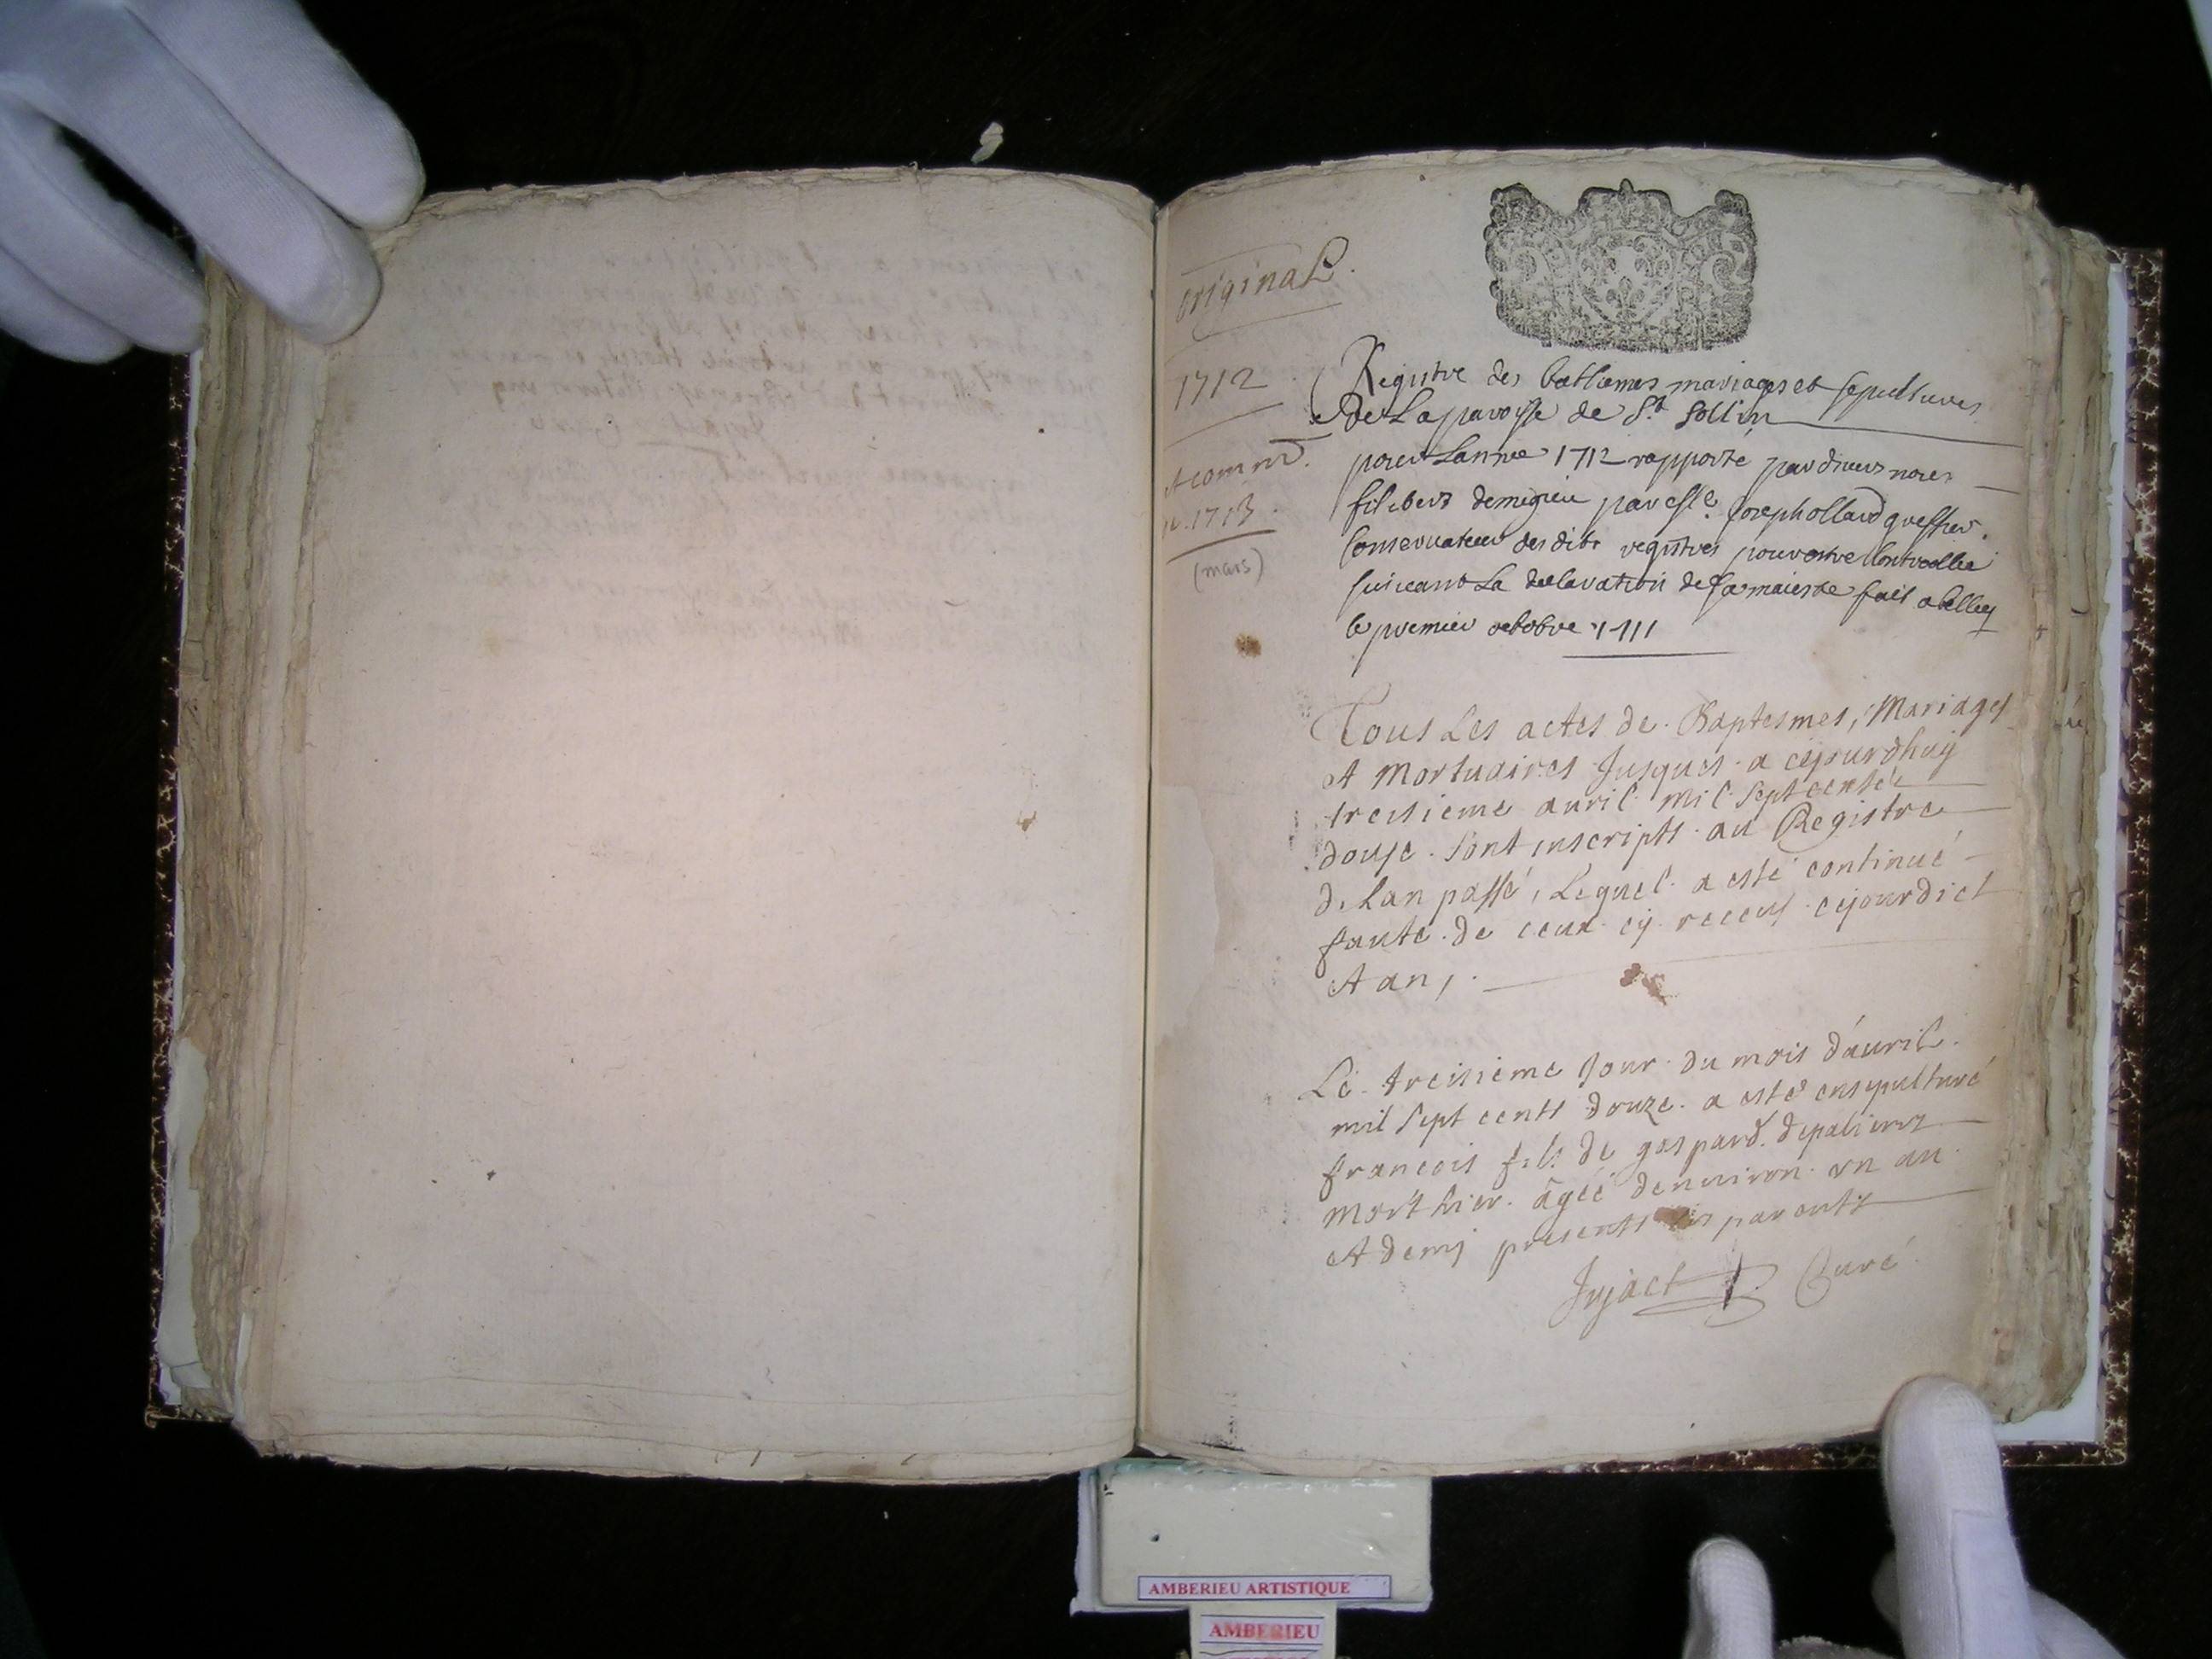 original.
1712
et comm.
1713.
(mars)
Registre des bathemes mariages et sepultures
De La paroisse de St. Sollin
pour Lannee 1712 rapporté par devers nous
filibert demigieu par Joseph ollard greffier
Conservateur des dits registres pour estre Controllee
suivant La declaration de sa maieste fait a belley
le premier octobre 1711
Tous Les actes de Baptesmes, Mariages
et Mortuaires Jusques a cejourdhuy
treisieme auril mil sept cents
douse sont inscripts au Registre
de Lan passé, Lequel a esté continué
faute de ceux cy receus cejourdict
et an,
Le treisieme Jour du mois dauril
mil sept cents douze a esté ensepulturé
francois fils de gaspard depaliere
morthier âgée denuiron vn an
et demj presents les parents
Jujact Curé
AMBERIEU ARTISTIQUE
AMBERIEU